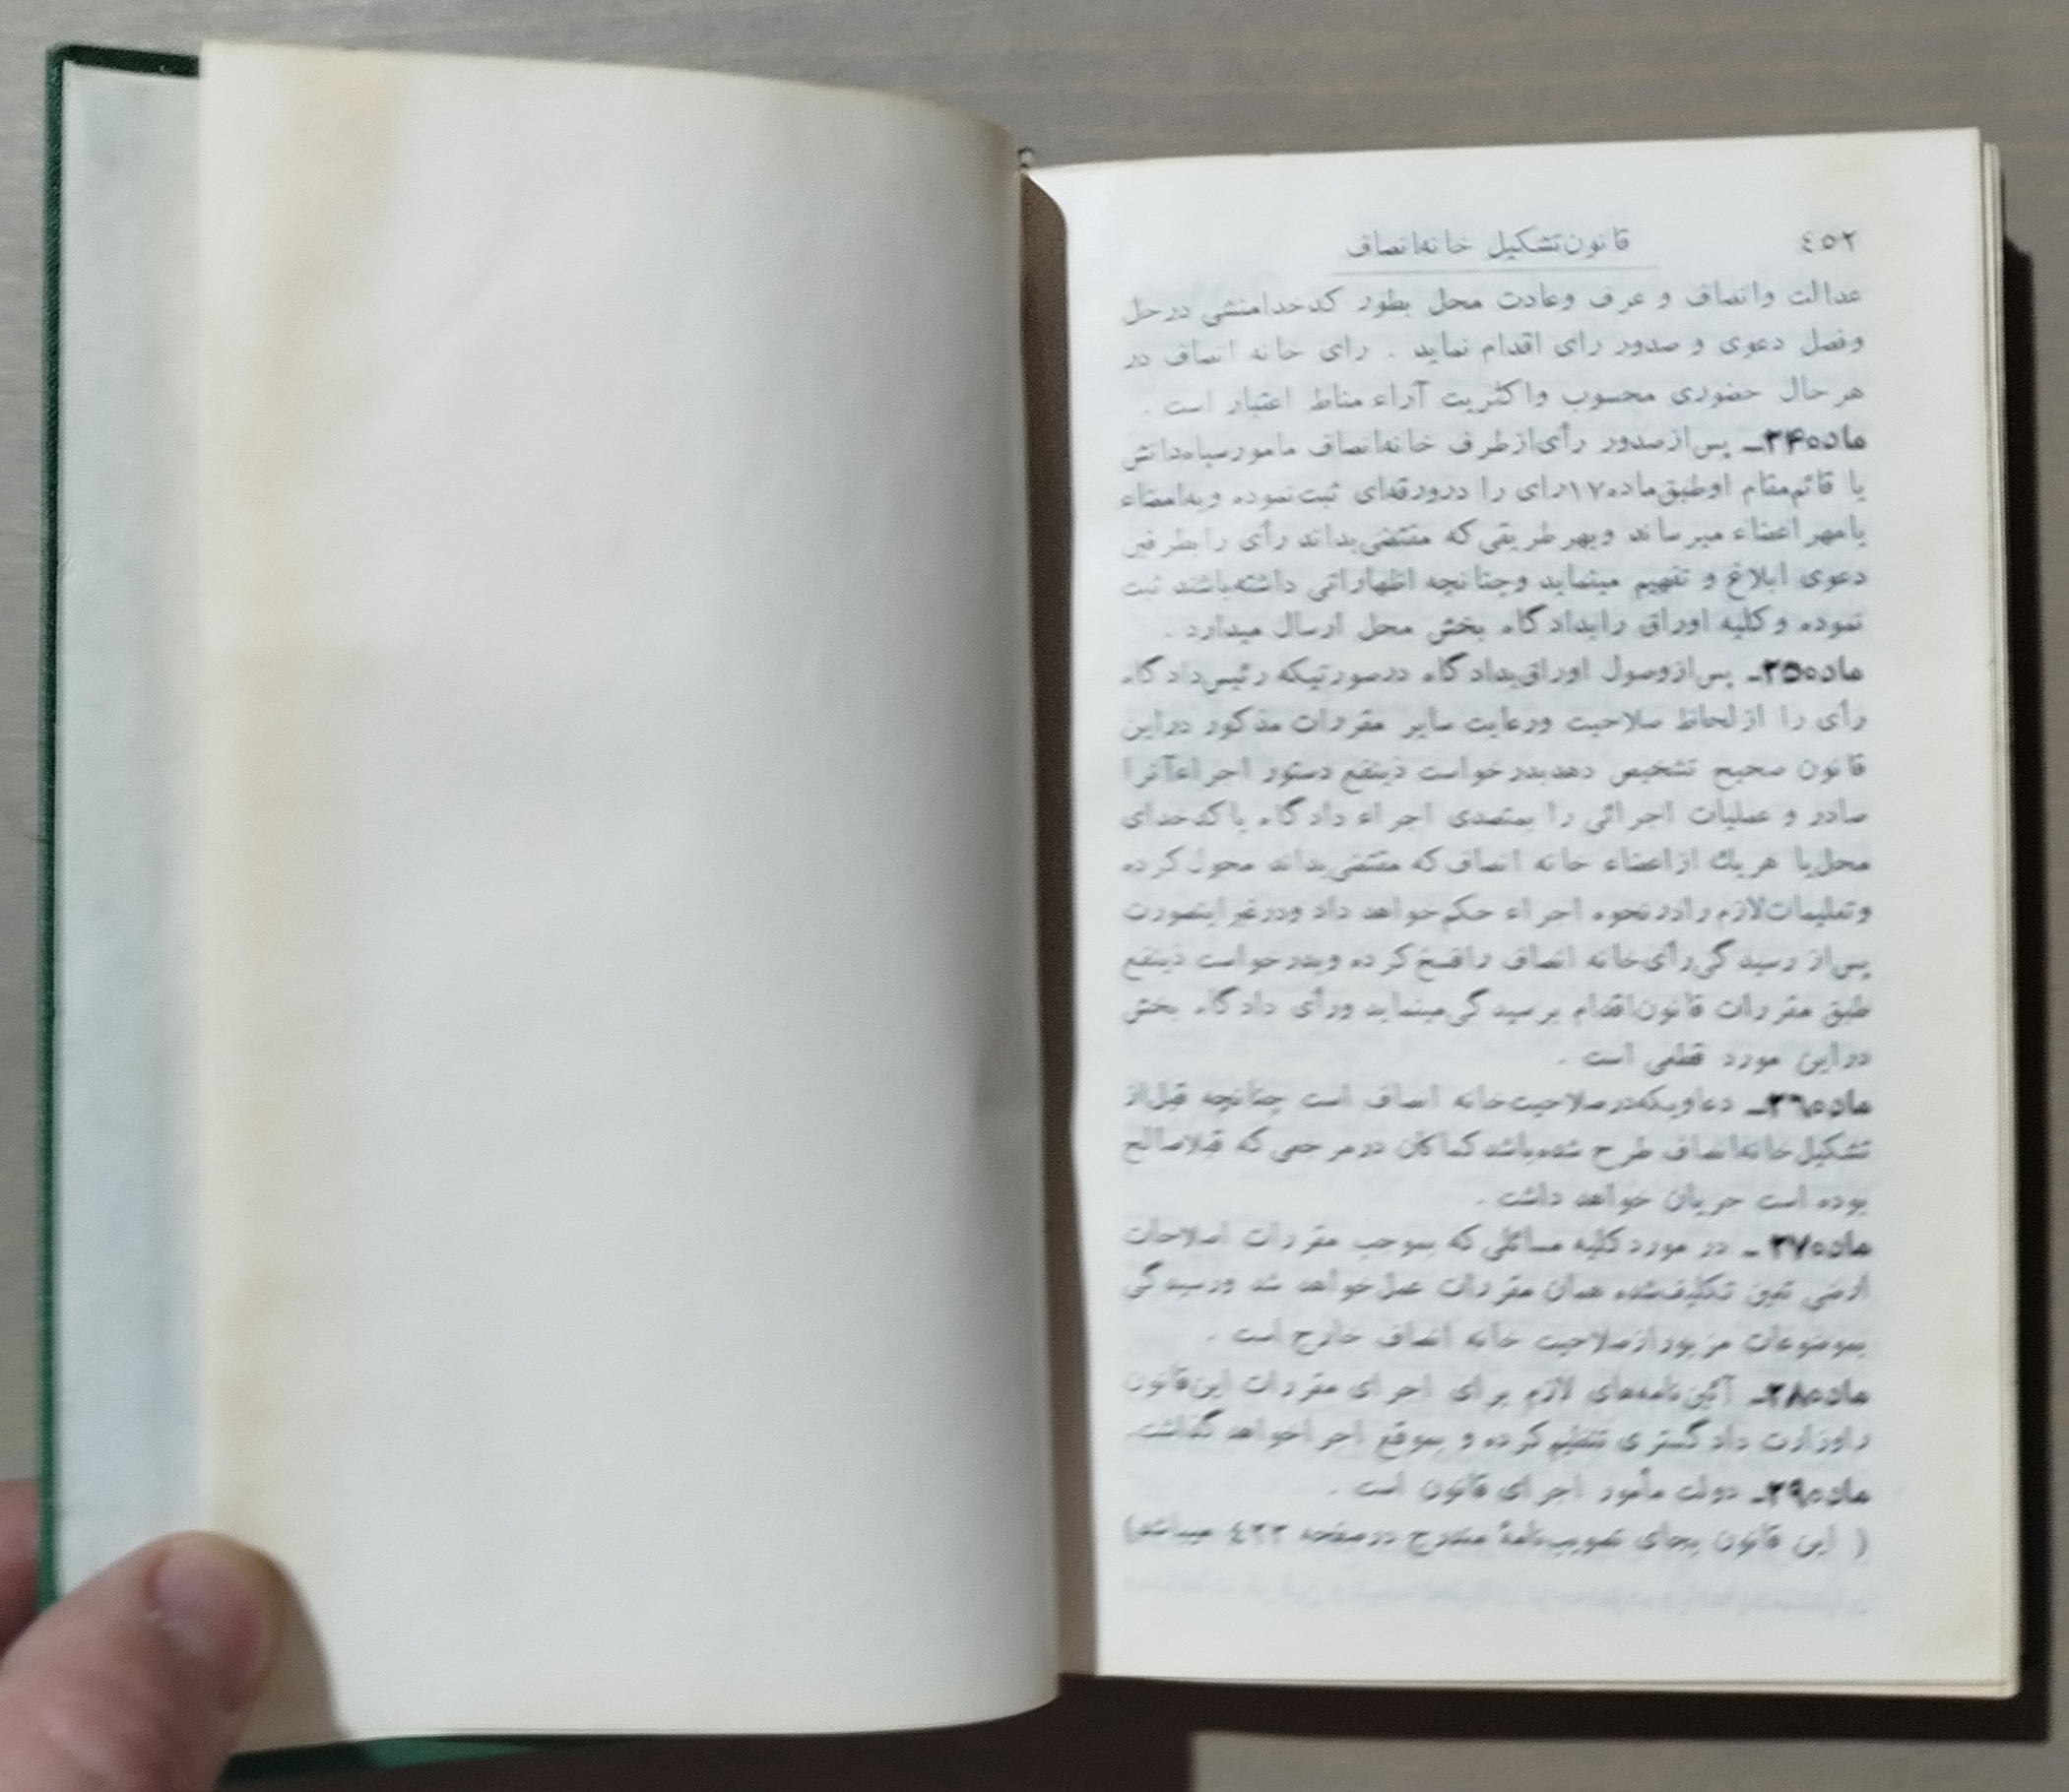 ٤٥٢ قانون تشکیل خانه انصاف
عدالت و انصاف و عرف وعادت محل بطور کدخدامنشی درحل
وفصل دعوی و صدور رای اقدام نماید . رای خانه انصاف در
هر حال حضوری محسوب واکثریت آراء مناط اعتبار است .
ماده۲۴ـ پس‌از صدور رأی‌از طرف خانه‌انصاف مامور سپاه‌دانش
یا قائم‌مقام اوطبق‌ماده۱۷رای را درورقه‌ای ثبت‌نموده وبه‌امضاء
یامهر اعضاء میرساند وبهر طریقی که مقتضی‌بداند رأی را بطرفین
دعوی ابلاغ و تفهیم مینماید وچنانچه اظهاراتی داشته‌باشند ثبت
نموده وکلیه اوراق رابدادگاه بخش محل ارسال میدارد .
ماده۲۵ـ پس‌ازوصول اوراق‌بدادگاه درصورتیکه رئیس‌دادگاه
رأی را ازلحاظ صلاحیت ورعایت سایر مقررات مذکور دراین
قانون صحیح تشخیص دهدبدرخواست ذینفع دستور اجراءآنرا
صادر و عملیات اجرائی را بمتصدی اجراء دادگاه یاکدخدای
محل‌یا هریك ازاعضاء خانه انصاف‌که مقتضی‌بداند محول‌کرده
وتعلیمات‌لازم رادرنحوه اجراء حکم‌خواهد داد ودرغیراینصورت
پس‌از رسیدگی‌رأی‌خانه انصاف رافسخ‌کرده وبدرخواست ذینفع
طبق مقررات قانون‌اقدام برسیدگی‌مینماید ورأی دادگاه بخش
دراین مورد قطعی است .
ماده۲۶ـ دعاویکه‌درصلاحیت‌خانه انصاف است چنانچه قبل‌از
تشکیل‌خانه‌انصاف طرح شده‌باشد کماکان درمرجعی که قبلاصالح
بوده است جریان خواهد داشت .
ماده۲۷ ـ در موردکلیه مسائلی که بموجب مقررات اصلاحات
ارضی تعیین تکلیف‌شده همان مقررات عمل‌خواهد شد ورسیدگی
بموضوعات مزبورازصلاحیت خانه انصاف خارج است .
ماده۲۸ـ آئین‌نامه‌های لازم برای اجرای مقررات این‌قانون
راوزارت دادگستری تنظیم‌کرده و بموقع اجراخواهد گذاشت.
ماده۲۹ـ دولت مأمور اجرای قانون است .
( این قانون بجای تصویب‌نامهٔ مندرج درصفحه ٤٣٣ میباشد)